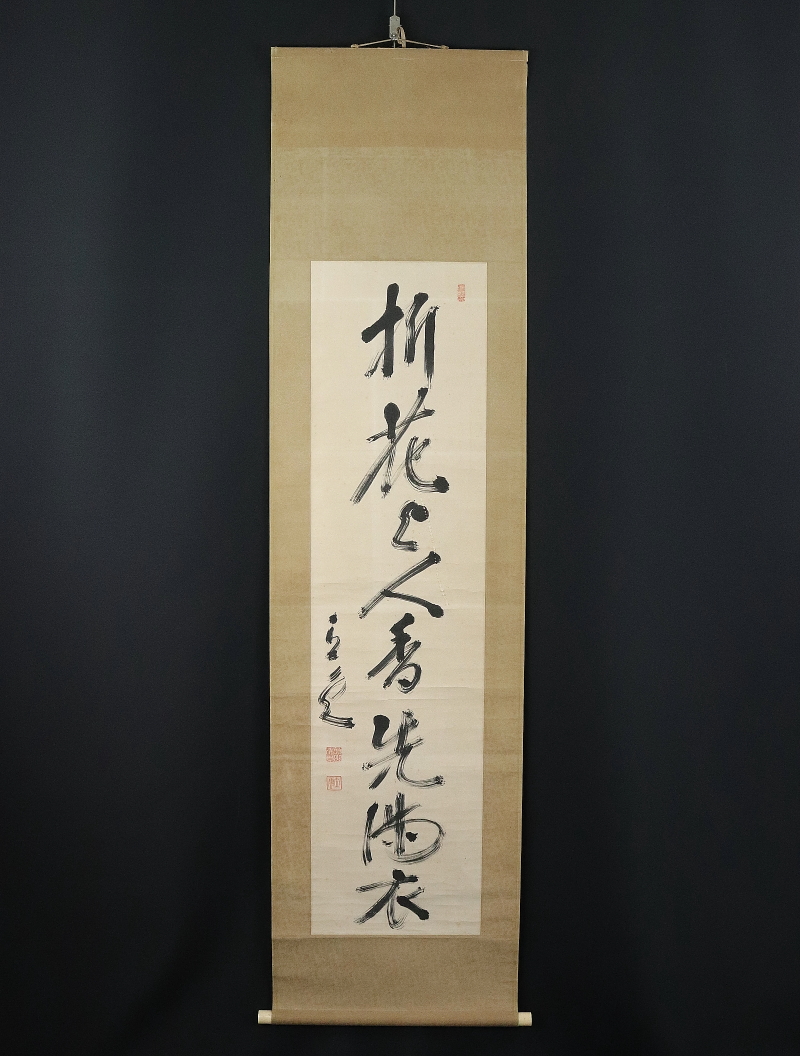 折花与人香先満衣